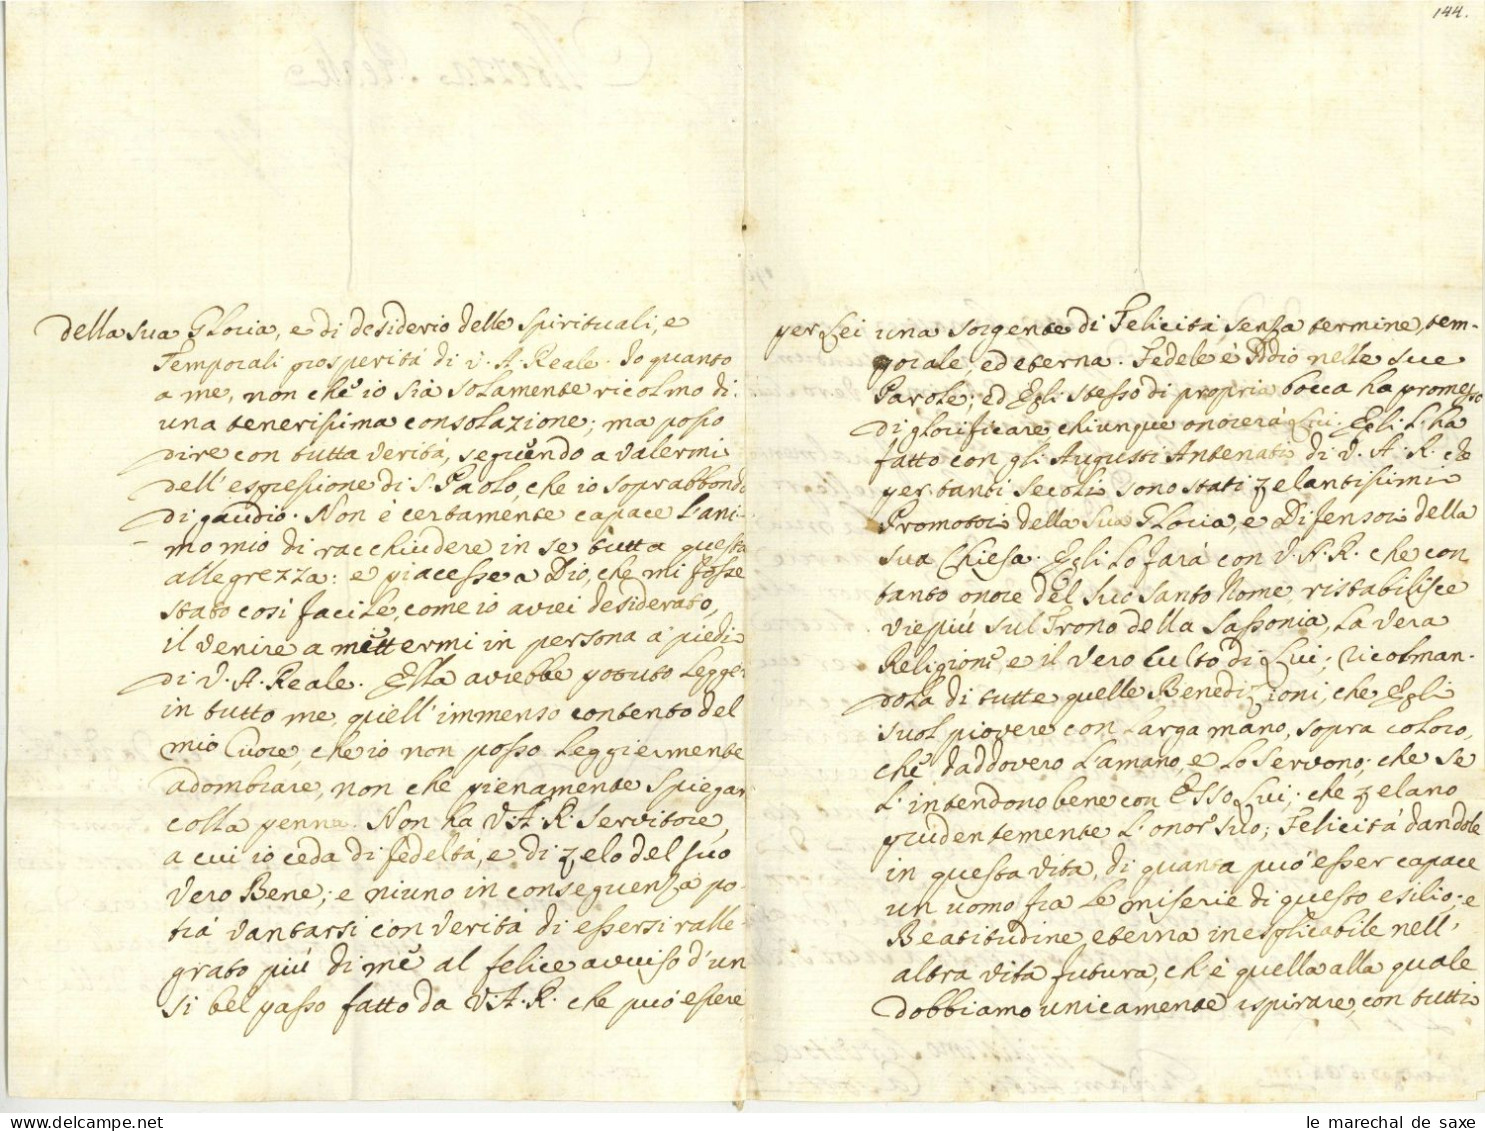 144.
della sua Gloria, e di desiderio delle spirituali, e
Temporali prosperità di V. A. Reale. Io quanto
a me, non che io sia solamente ricolmo di
una tenerissima consolazione; ma posso
dire con tutta verità, seguendo a valermi
dell'espressione di S. Paolo, che io soprabbondo
di gaudio. Non è certamente capace l'ani-
mo mio di racchiudere in se tutta questa
allegrezza: e piacesse a Dio, che mi fosse
stato così facile, come io avrei desiderato,
il venire a mettermi in persona a' piedi
di V. A. Reale. Ella avrebbe potuto legger
in tutto me, quell'immenso contento del
mio Cuore, che io non posso leggiermente
adombrare, non che pienamente spiegar
colla penna. Non ha V. A. R. servitore,
a cui io ceda di fedeltà, e di zelo del suo
vero Bene; e niuno in conseguenza po-
trà vantarsi con verità di essersi ralle-
grato più di me al felice avviso d'un
sì bel passo fatto da V. A. R. che può essere
per Lei una sorgente di Felicità senza termine, tem-
porale, ed eterna. Fedele è Iddio nelle sue
Parole; ed Egli stesso di propria bocca ha promesso
di glorificare chiunque onorerà Lui. Egli l'ha
fatto con gli Augusti Antenati di V. A. R. che
per tanti secoli sono stati zelantissimi
Promotori della sua Gloria, e Difensori della
sua Chiesa. Egli lo farà con V. A. R. che con
tanto onore del suo santo Nome, ristabilisce
vie più sul Trono della Sassonia, la vera
Religione, e il vero culto di Lui; ricolman-
dola di tutte quelle Benedizioni, che Egli
suol piovere con larga mano, sopra coloro,
che daddovero l'amano, e lo servono; che se
l'intendono bene con Esso Lui; che zelano
prudentemente l'onor suo; Felicità dandole
in questa vita, di quanta può esser capace
un uomo fra le miserie di questo esilio; e
Beatitudine eterna inesplicabile nell'
altra vita futura, ch'è quella alla quale
dobbiamo unicamente aspirare, con tutti
le marechal de saxe